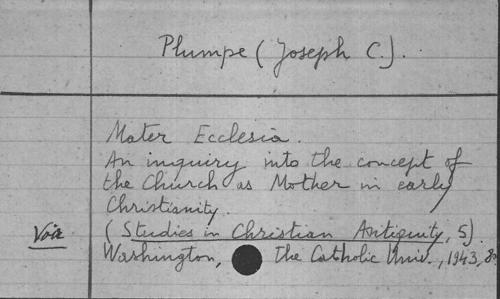 Plumpe (Joseph C.).
Mater Ecclesia.
An inquiry into the concept of
the Church as Mother in early
Christianity.
(Studies in Christian Antiquity, 5).
Via
Washington, the Catholic Univ., 1943, 8º